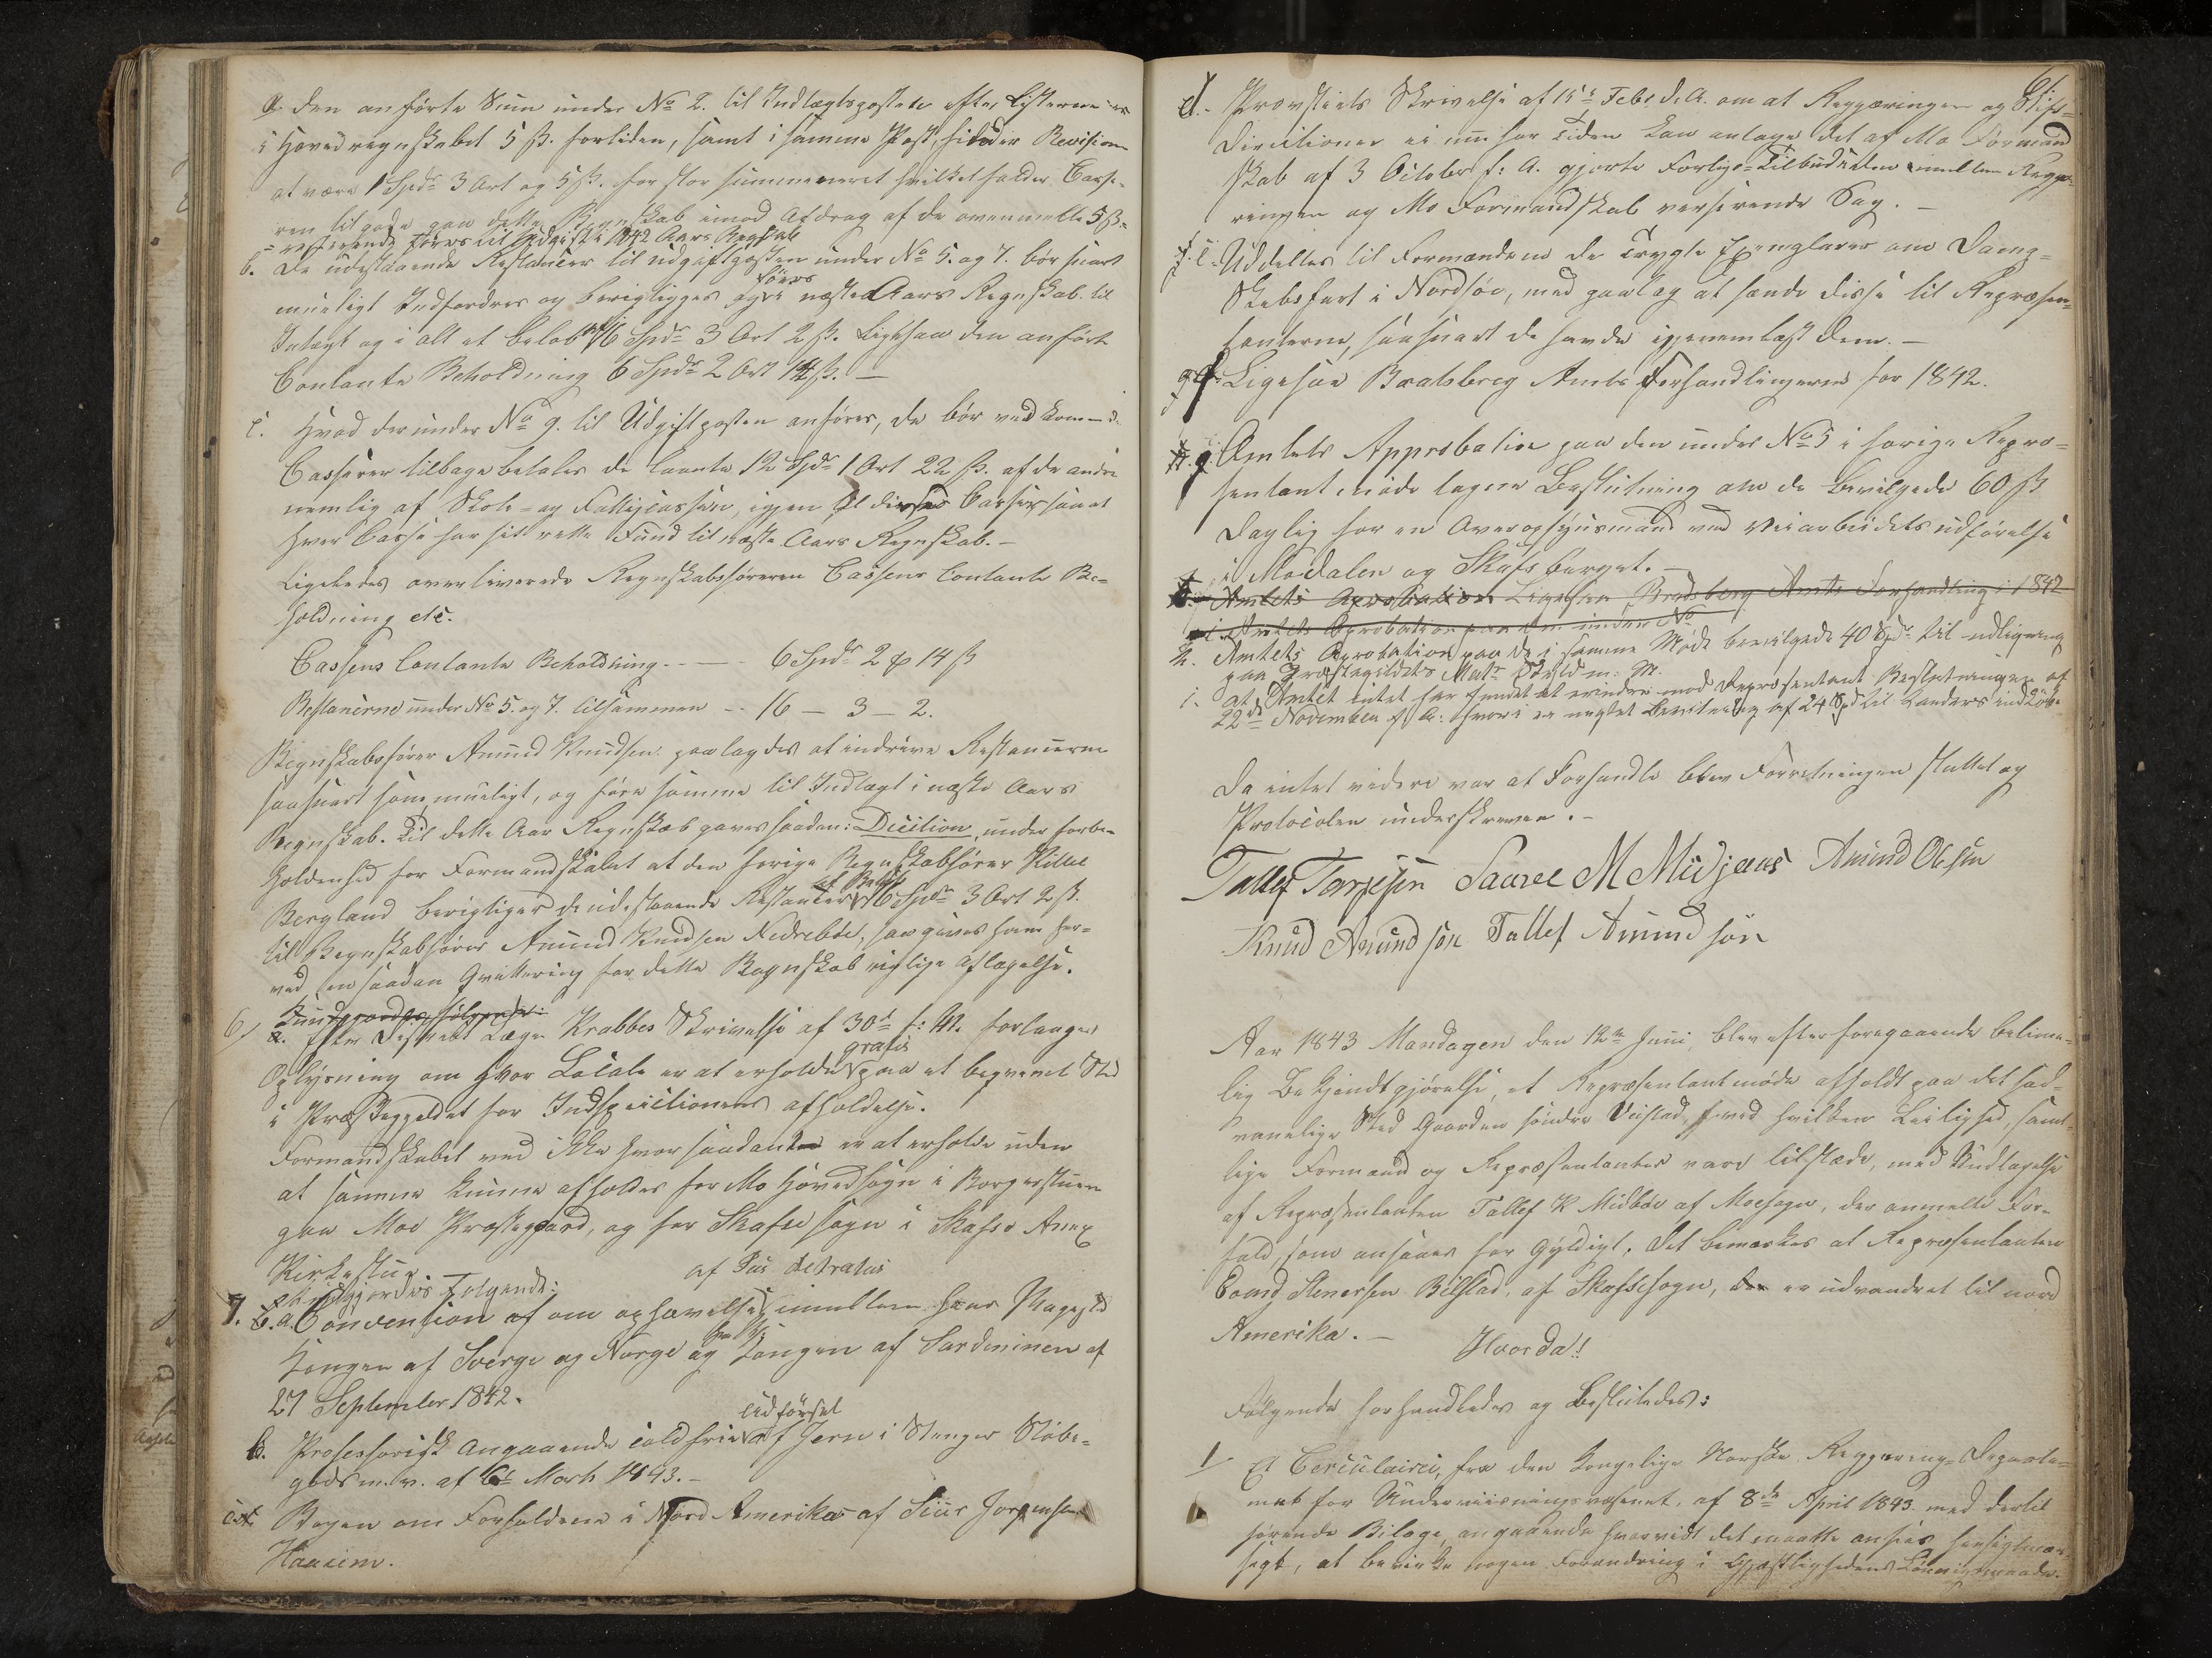 a. den anførte Sum under No 2. til Indtægtsposten efter Listerne er
i Hovedregnskabet 5 ß. forliden, samt i samme Post, finder Revisionen
at være 1 Spdr 3 Ort og 5 ß. for stor summeneret hvilket falder Casse-
ren tilgode paa dette Regnskab imod Afdrag af de ovenmeldte 5 ß.
resterende føres til Udgift i 1842 Aars Regnskab
b. De udestaaende Restancer til udgiftposten under No 5. og 7. bør snart
mueligt Indfordres og berigtigges og føres næste Aars Regnskab til
Indtægt og i alt et beløb 16 Spdr 3 Ort 2 ß. Ligesaa den anførte
Contante Beholdning 6 Spdr 2 Ort 14 ß. —
c. Hvad der under No 9. til Udgiftposten anføres, da bør vedkommende
Casserer tilbage betales de laante 12 Spdr 1 Ort 22 ß. af de andre
nemlig af Skole- og Fattigcassen, igjen til disse Casser, saa at
hver Casse har sit rette Fund til næste Aars Regnskab. —
Ligeledes overleverede Regnskabsføreren Cassens Contante Be-
holdning etc.
Cassens Contante Beholdning - - — 6 Spdr 2 Ort 14 ß
Restancerne under No 5. og 7. tilsammen - - 16 — 3 — 2.
Regnskabsfører Amund Knudsen paalagdes at inddrive Restancerne
saasnart som mueligt, og føre samme til Indtægt i næste Aars
Regnskab. Til dette Aar Regnskab gaves saadan: Decition, under forbe-
holdenhed for Formandskabet at den forige Regnskabsfører Kittel
Bergland berigtiger de udestaaende Restancer til Beløb 16 Spdr 3 Ort 2 ß.
til Regnskabsfører Amund Knudsen Nedrebøe, saa gives ham her-
ved en saadan Qvittering for dette Regnskab rigtige aflægelse.
Kundgjordes følgende:
6/ a. Efter Destrict Læge Krabbes Skrivelse af 30te f: M. forlanges
Oplysning om hvor Locale er at erholde gratis paa et beqvemt Sted
i Præstegjeldet for Indspectionens afholdelse.
Formandskabet ved ikke hvor saadant er at erholde uden
at samme kunne afholdes for Mo Hovedsogn i Borgerstuen
paa Moe Præstegaard, og for Skafse sogn i Skafse Anex
Kirkestue
Kundgjordes Følgende: af Jus detratus
7. a. Convention af om ophævelse imellem Hans Majestæt
Kongen af Sverge og Norge og Hs Mj Kongen af Sardininen af
27 September 1842.
b. Professorisk Angaaende toldfrie udførsel af Jern i Stenger Støbe-
gods m. v. af 6te Marts 1843. —
c. Bogen om Forholdene i Nord Amerika af Siur Jørgensen
Haaeim.
61
d. Provstiets Skrivelse af 15de Febr. d. A. om at Regjeringen og Stifts-
Direitionen ei nu for Tiden kan antage det af Mo Formand
skab af 3 October f: A. gjorte Forligs-Tilbud i den imellem Regje-
ringen og Mo Formandskab verserende Sag. —
e. Uddeltes til Formændene de trygte Exemplarer om Damp-
skibsfart i Nordsøe, med paalæg at sende disse til Repræsen-
tanterne, saasnart de havde igjennemlæst dem. —
f. Ligesaa Bratsberg Amts Forhandlingerne for 1842.
g. Amtets Approbation paa den under No 5 i forige Repre-
sentantmøde tagne Beslutning om de bevilgede 60 ß
daglig for en Overopsynsmand ved Veiarbeidets udførelse
i Modalen og Skafsberget. —
Amtets Aprobation Ligesaa Bradsberg Amts Forhandling i 1842
i. Amtets Aprobation paa den under No
h. Amtets Aprobation paa de i samme Møde bevilgede 40 Spdr til udligning
paa Præstegieldets Matr Skyld m. M.
i. at Amtet intet har fundet at erindre mod Repræsentant Beslutningen af
22de November f. A. hvori er negtet bevilning af 24 Spd til Landers indkøb
Da intet videre var at Forhandle blev Forretningen sluttet og
Protocolen underskreven. —
Tallef Tarjesen Saave M Midjaas Amund Olsen
Knud Amundsøn Tallef Amundsøn
Aar 1843 Mandagen den 12te Juni, blev efter foregaaende betime-
lig Bekjendtgjørelse, et Repræsentantmøde afholdt paa det sæd-
vanelige Sted Gaarden søndre Veistad, ved hvilken Leilighed, samt-
lige Formænd og Repræsentanter vare tilstæde, med Undtagelse
af Repræsentanten Tallef K Midbøe af Moesogn, der anmeldte For-
fald, som ansaaes for Gyldigt. Det bemærkes at Repræsentanten
Eavnd Stenersen Bilstad, af Skafsesogn, er udvandret til nord
Amerika. —
Hvorda!!
Følgende forhandledes og Besluttedes:
1/ Et Cerculaire, fra den Kongelige Norske Regjerings-Departe-
ment for Underviisningsvæsenet, af 8de April 1843 med dertil
hørende Bilage, angaaende hvorvidt det maatte ansees hensigtmæs-
sigt, at bevirke nogen Forandring i Gjeistlighedens Lønningsmaade.